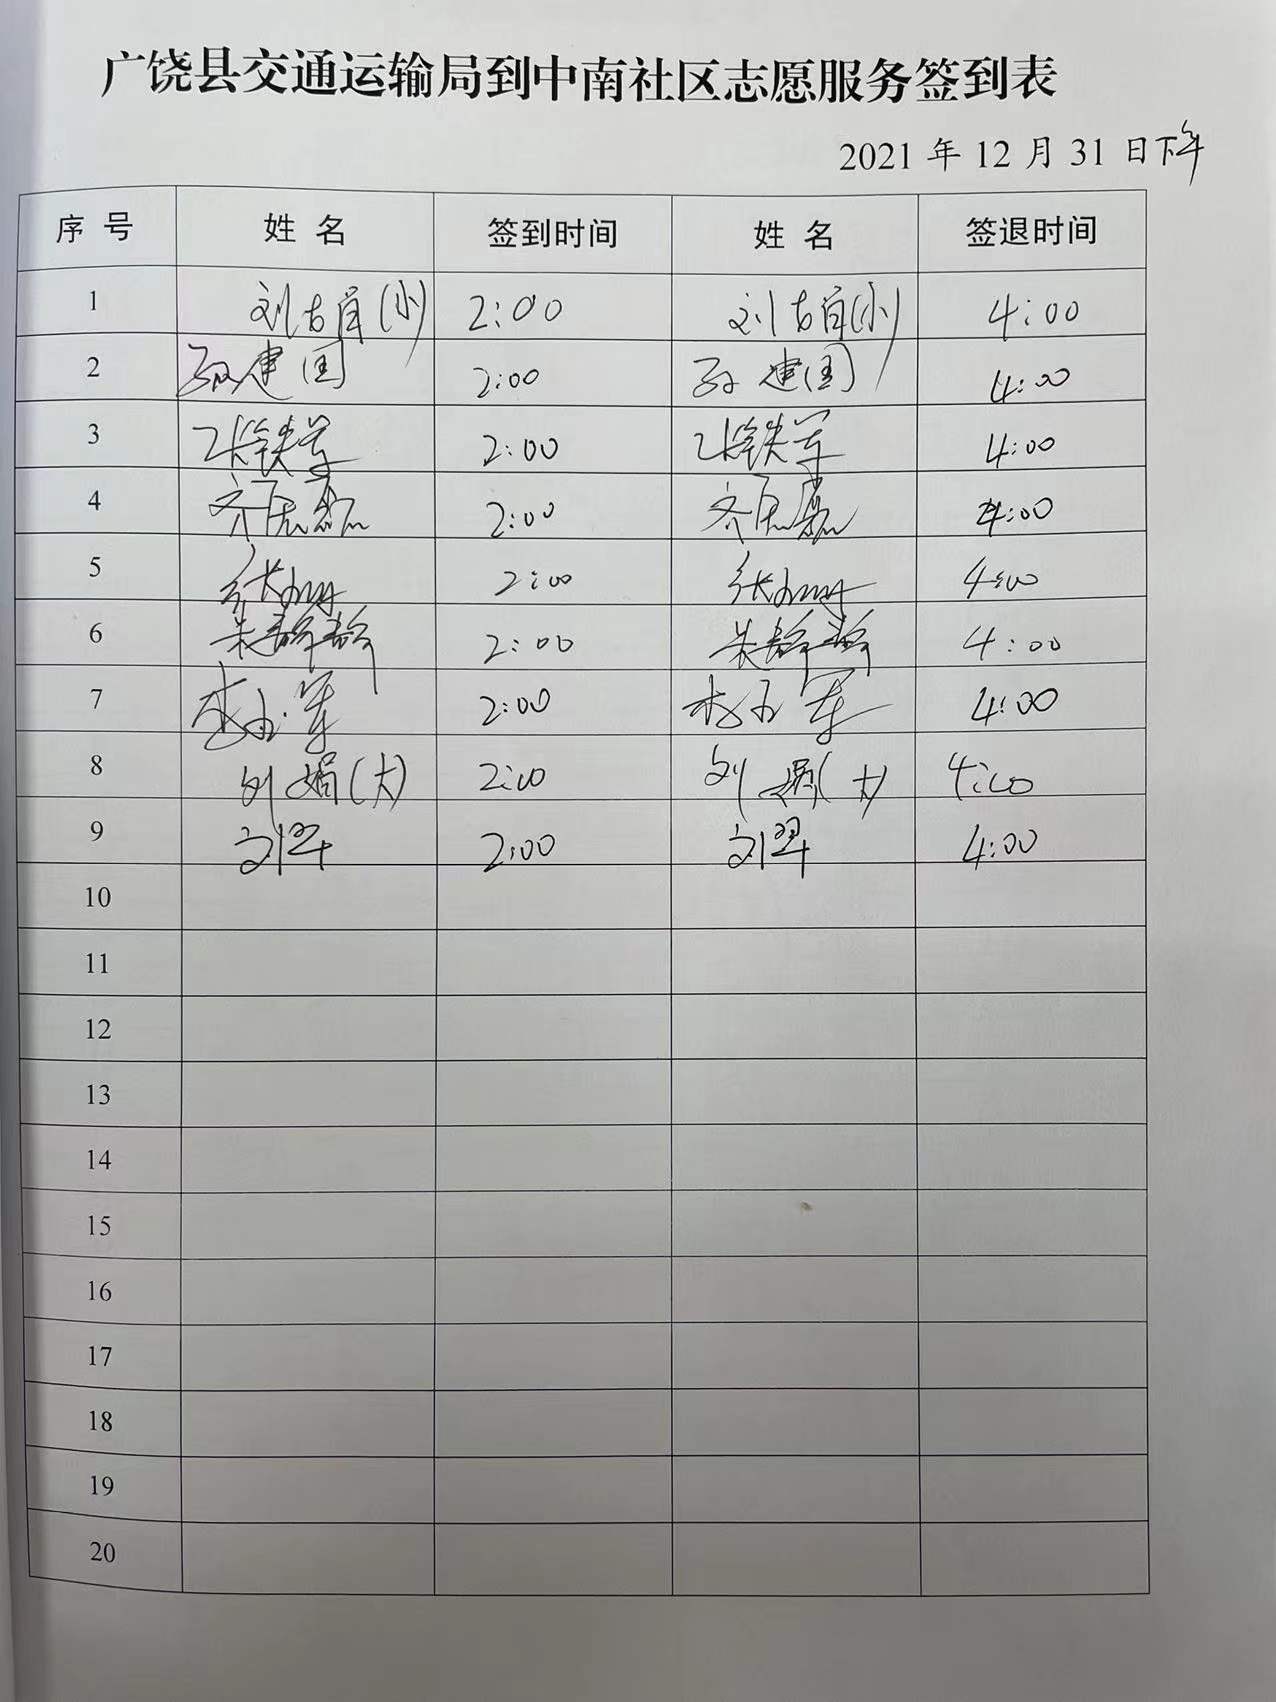 广饶县交通运输局到中南社区志愿服务签到表
2021 年 12 月 31 日下午
序 号 姓 名 签到时间 姓 名 签退时间
1 (小) 2:00 (小) 4:00
2 孙建国 2:00 孙建国 4:00
3 张铁军 2:00 张铁军 4:00
4 2:00 4:00
5 2:00 4:00
6 2:00 4:00
7 2:00 4:00
8 刘娟(大) 2:00 刘娟(大) 4:00
9 2:00 4:00
10
11
12
13
14
15
16
17
18
19
20